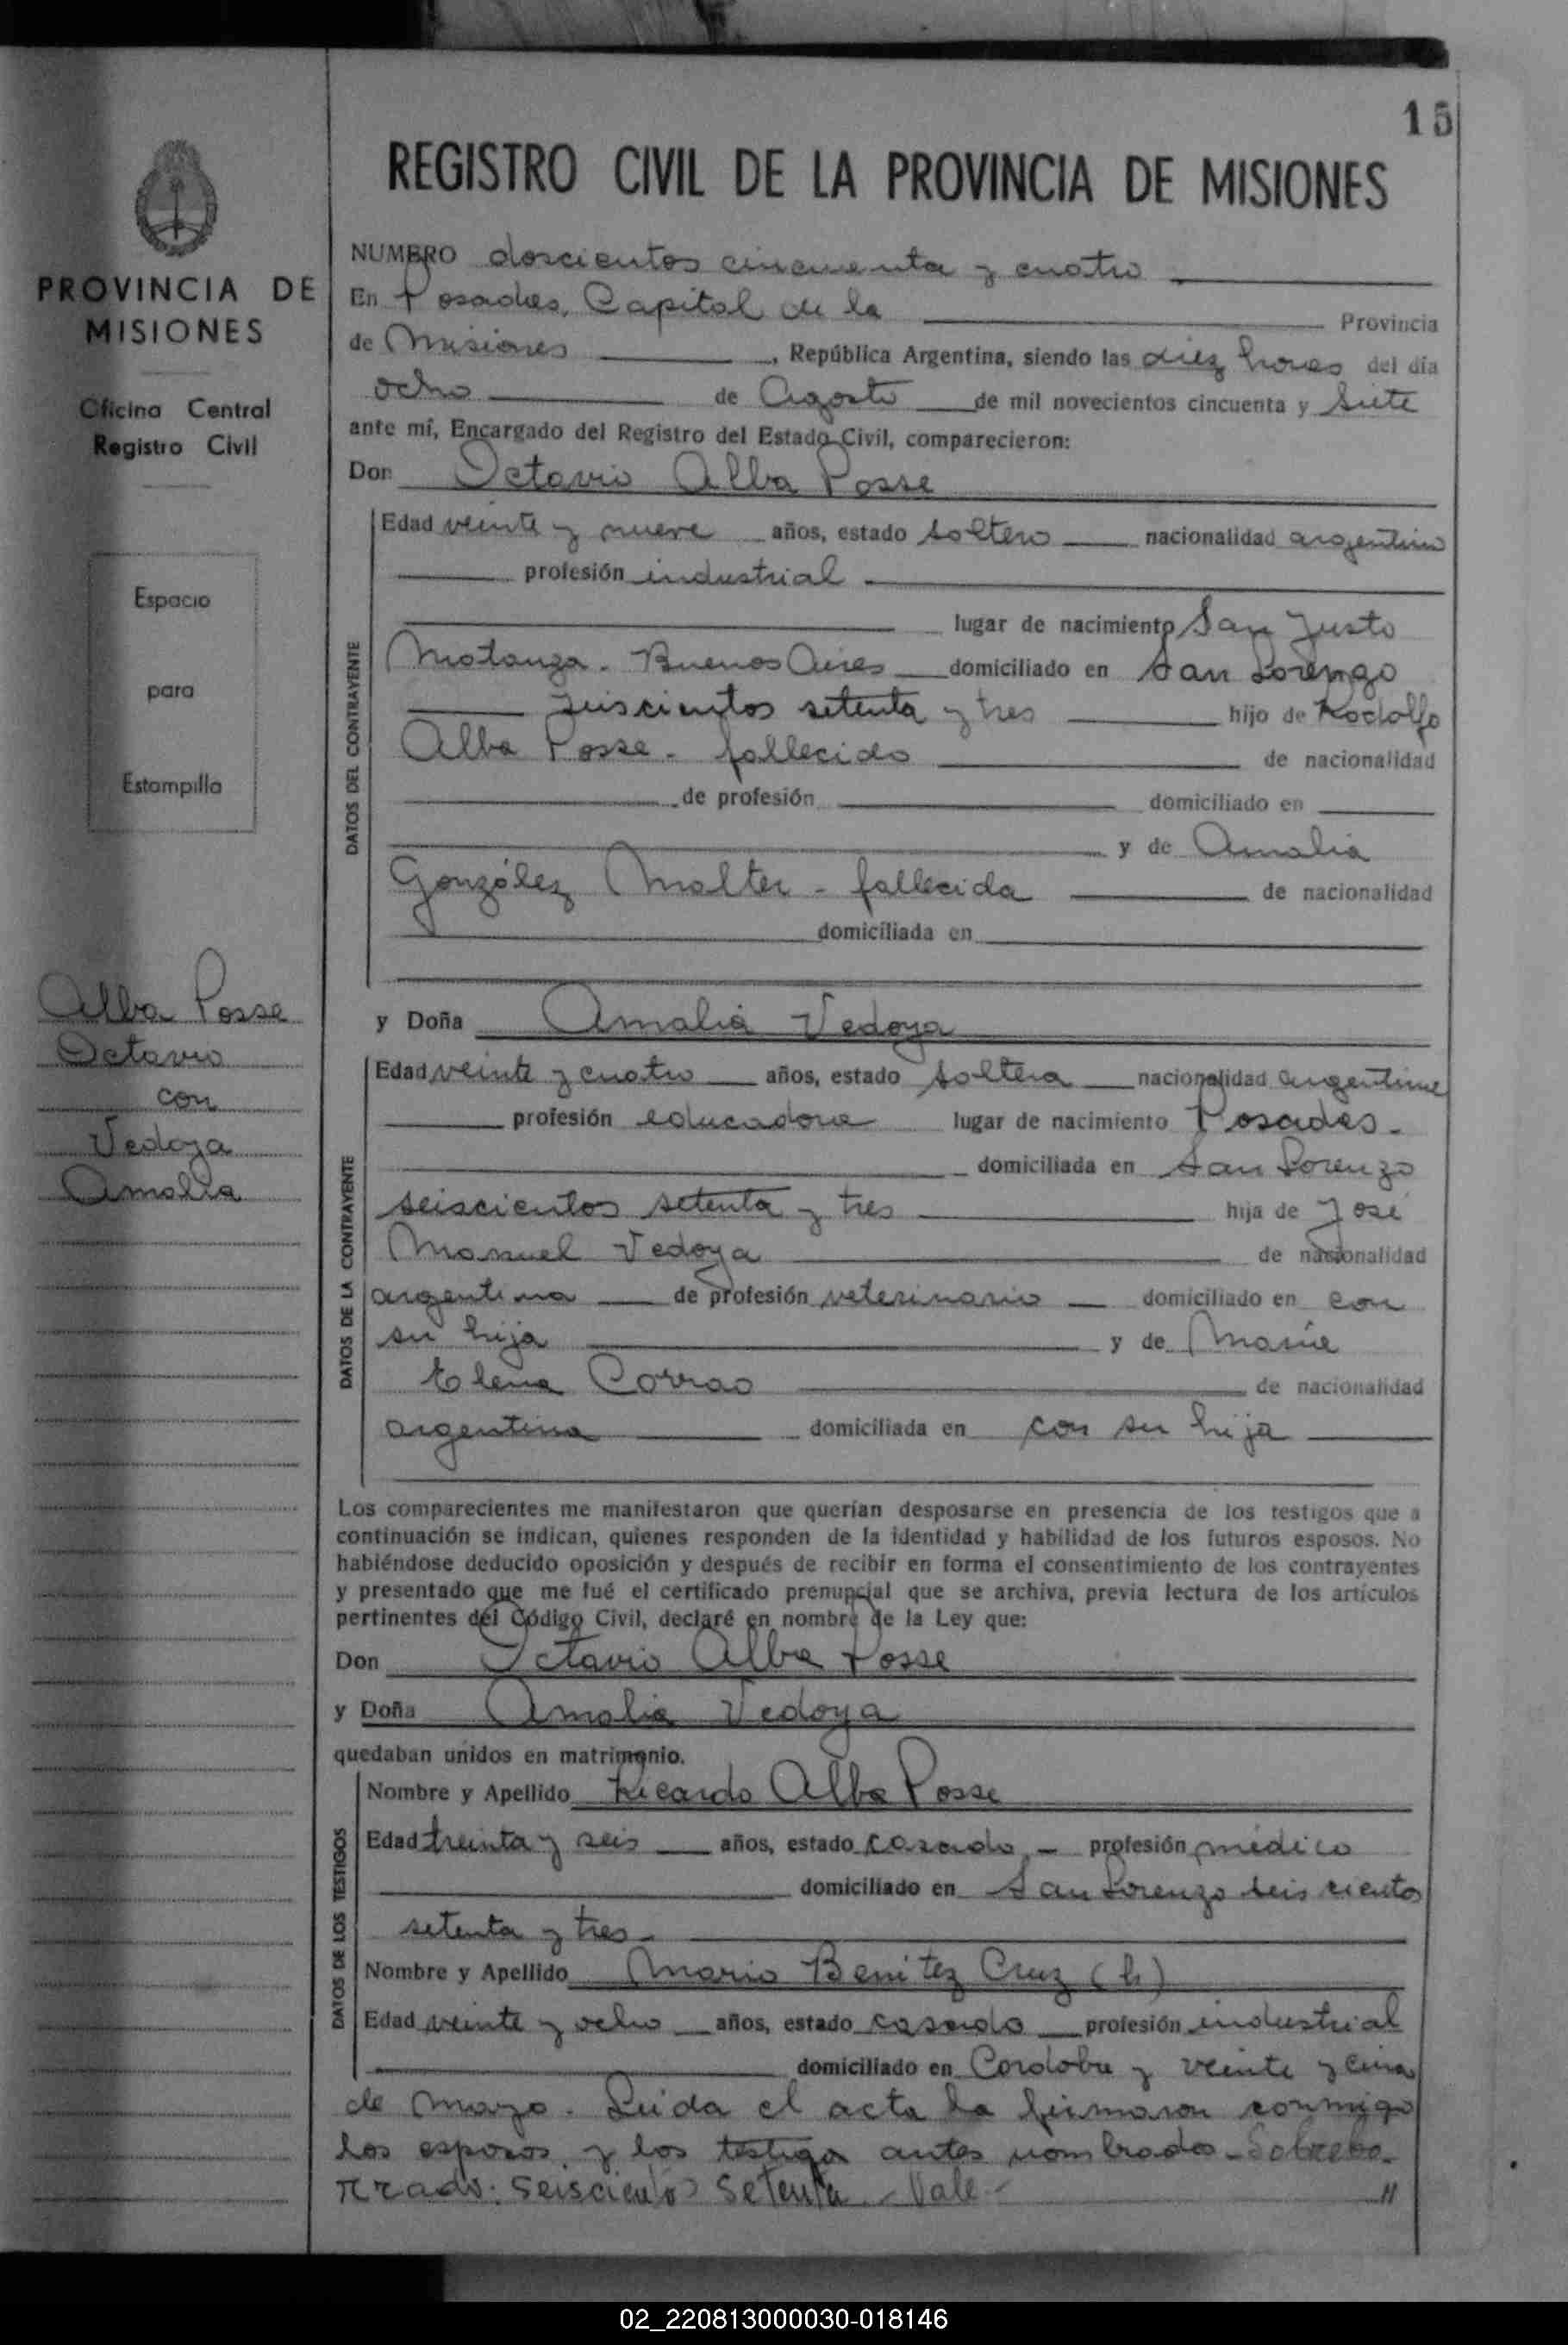 15
REGISTRO CIVIL DE LA PROVINCIA DE MISIONES
PROVINCIA DE
MISIONES
Oficina Central
Registro Civil
Espacio
para
Estampilla
Alba Posse
Octavio
con
Vedoya
Amalia
NUMERO doscientos cincuenta y cuatro
En Posadas, Capital de la Provincia
de Misiones, República Argentina, siendo las diez horas del día
ocho de Agosto de mil novecientos cincuenta y siete
ante mí, Encargado del Registro del Estado Civil, comparecieron:
Don Octavio Alba Posse
DATOS DEL CONTRAYENTE
Edad veinte y nueve años, estado soltero nacionalidad argentino
profesión industrial
lugar de nacimiento San Justo
Matanza. Buenos Aires domiciliado en San Lorenzo
seiscientos setenta y tres hijo de Rodolfo
Alba Posse - fallecido de nacionalidad
de profesión domiciliado en
y de Amalia
González Malter - fallecida de nacionalidad
domiciliada en
y Doña Amalia Vedoya
DATOS DE LA CONTRAYENTE
Edad veinte y cuatro años, estado soltera nacionalidad argentina
profesión educadora lugar de nacimiento Posadas.
domiciliada en San Lorenzo
seiscientos setenta y tres hija de José
Manuel Vedoya de nacionalidad
argentina de profesión veterinario domiciliado en con
su hija y de María
Elena Corrao de nacionalidad
argentina domiciliada en con su hija
Los comparecientes me manifestaron que querían desposarse en presencia de los testigos que a
continuación se indican, quienes responden de la identidad y habilidad de los futuros esposos. No
habiéndose deducido oposición y después de recibir en forma el consentimiento de los contrayentes
y presentado que me fué el certificado prenupcial que se archiva, previa lectura de los artículos
pertinentes del Código Civil, declaré en nombre de la Ley que:
Don Octavio Alba Posse
y Doña Amalia Vedoya
quedaban unidos en matrimonio.
DATOS DE LOS TESTIGOS
Nombre y Apellido Ricardo Alba Posse
Edad treinta y seis años, estado casado - profesión médico
domiciliado en San Lorenzo seiscientos
setenta y tres -
Nombre y Apellido Mario Benitez Cruz (h)
Edad veinte y ocho años, estado casado profesión industrial
domiciliado en Cordoba y veinte y cinco
de Mayo. Leida el acta la firmaron conmigo
los esposos y los testigos antes nombrados - Sobrebo-
rrado: seiscientos setenta - Vale - "
02_220813000030-018146